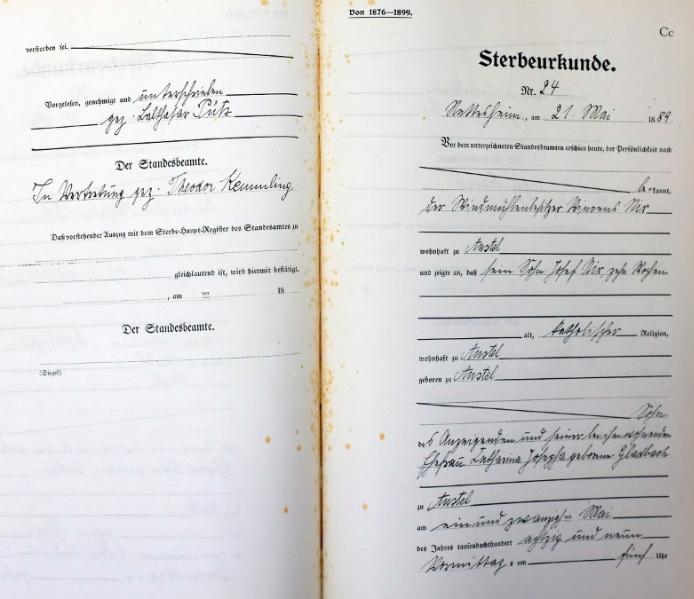 verstorben sei.
Vorgelesen, genehmigt und unterschrieben
gez. Balthasar Pütz
Der Standesbeamte.
In Vertretung gez. Theodor Kemmling.
Daß vorstehender Auszug mit dem Sterbe-Haupt-Register des Standesamtes zu
gleichlautend ist, wird hiermit bestätigt.
, am ten 18
Der Standesbeamte.
(Siegel)
Von 1876—1899.
Cc
Sterbeurkunde.
Nr. 24
Nettesheim, am 21. Mai 1889
Vor dem unterzeichneten Standesbeamten erschien heute, der Persönlichkeit nach
be=kannt,
der Windmühlenbesitzer
wohnhaft zu Anstel
und zeigte an, daß sein Sohn Josef zehn Wochen
alt, katholischer Religion,
wohnhaft zu Anstel
geboren zu Anstel
Sohn
des Anzeigenden und seiner bei ihm wohnenden
Ehefrau Catharina Josepha geborene Gladbach
zu Anstel
am ein und zwanzigsten Mai
des Jahres tausendachthundert achtzig und neun
Vormittags um fünf Uhr